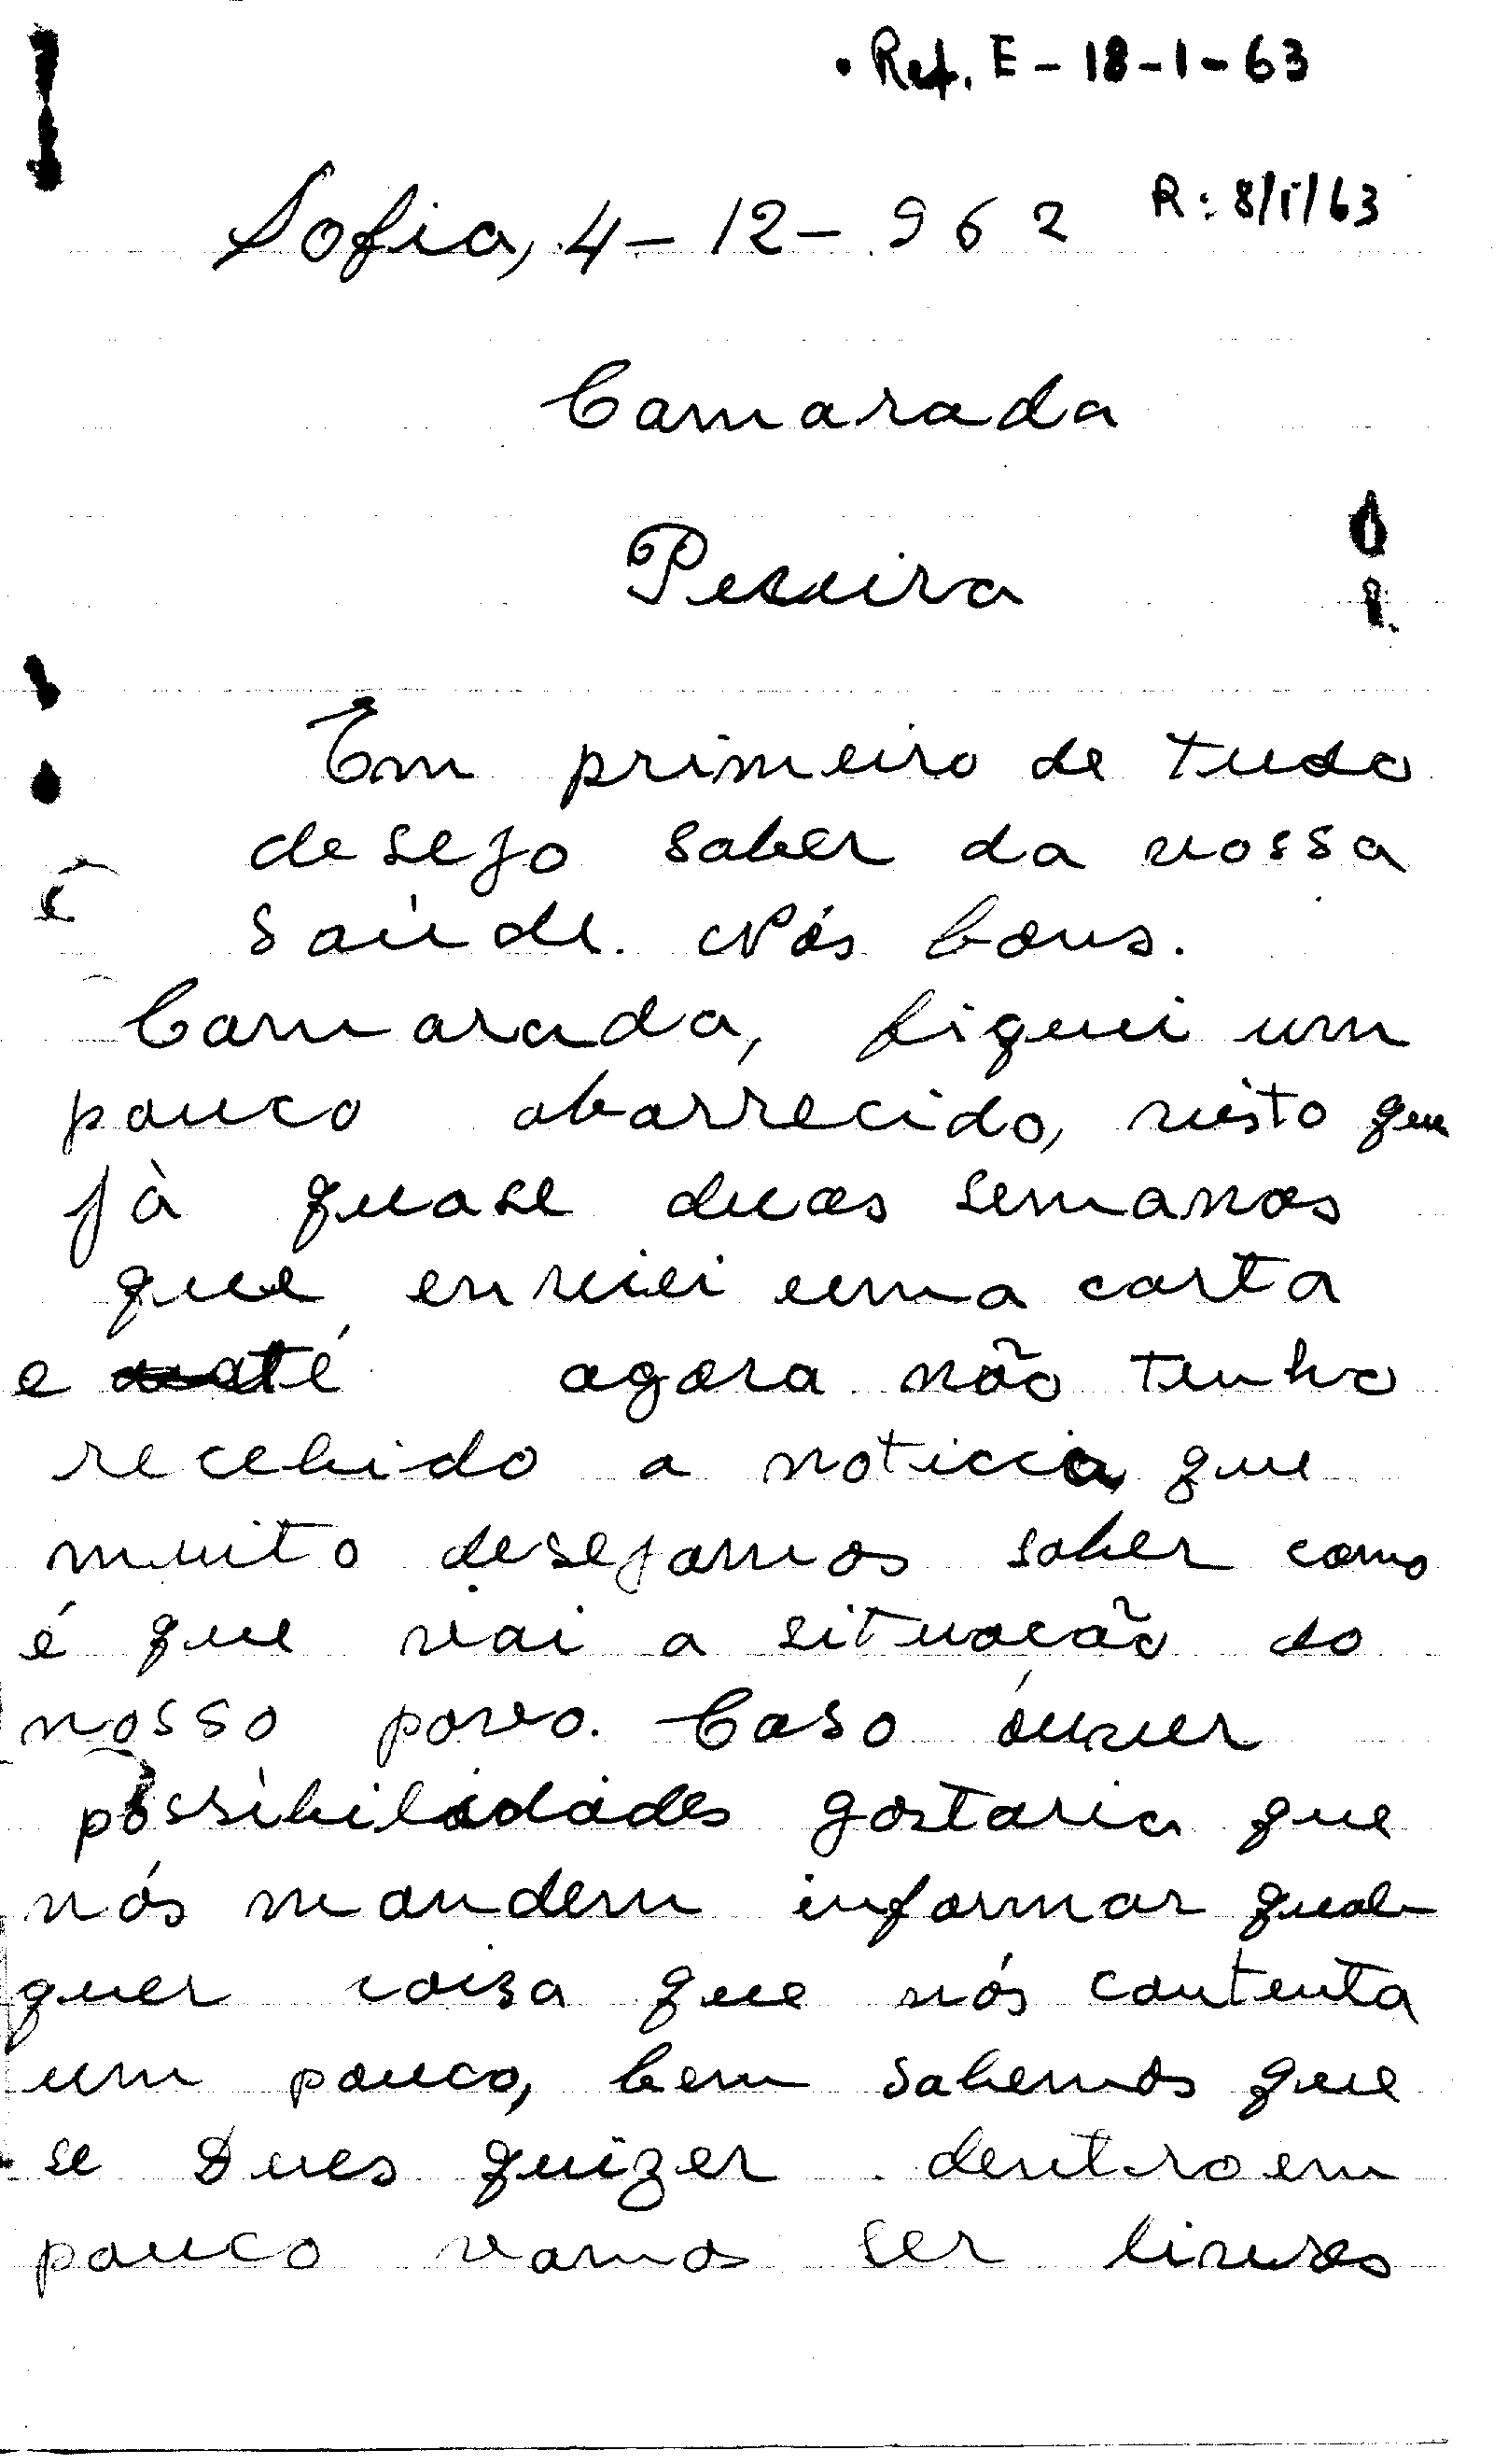 . Ref. E - 18-1-63
R: 8/1/63
Sofia, 4-12-962
Camarada
Pereira
Em primeiro de tudo
desejo saber da vossa
saúde. Nós bons.
Camarada, fiquei um
pouco abarrecido, visto que
jà quase duas semanas
que enviei uma carta
e até agora não tenho
recebido a noticia, que
muito desejamos saber como
é que vai a situacão do
nosso povo. Caso ouver
possibilidades gostaria que
nós mandem informar qual-
quer coisa que nós contenta
um pouco, bem sabemos que
se Deus quizer dentro em
pouco vamos ser livres